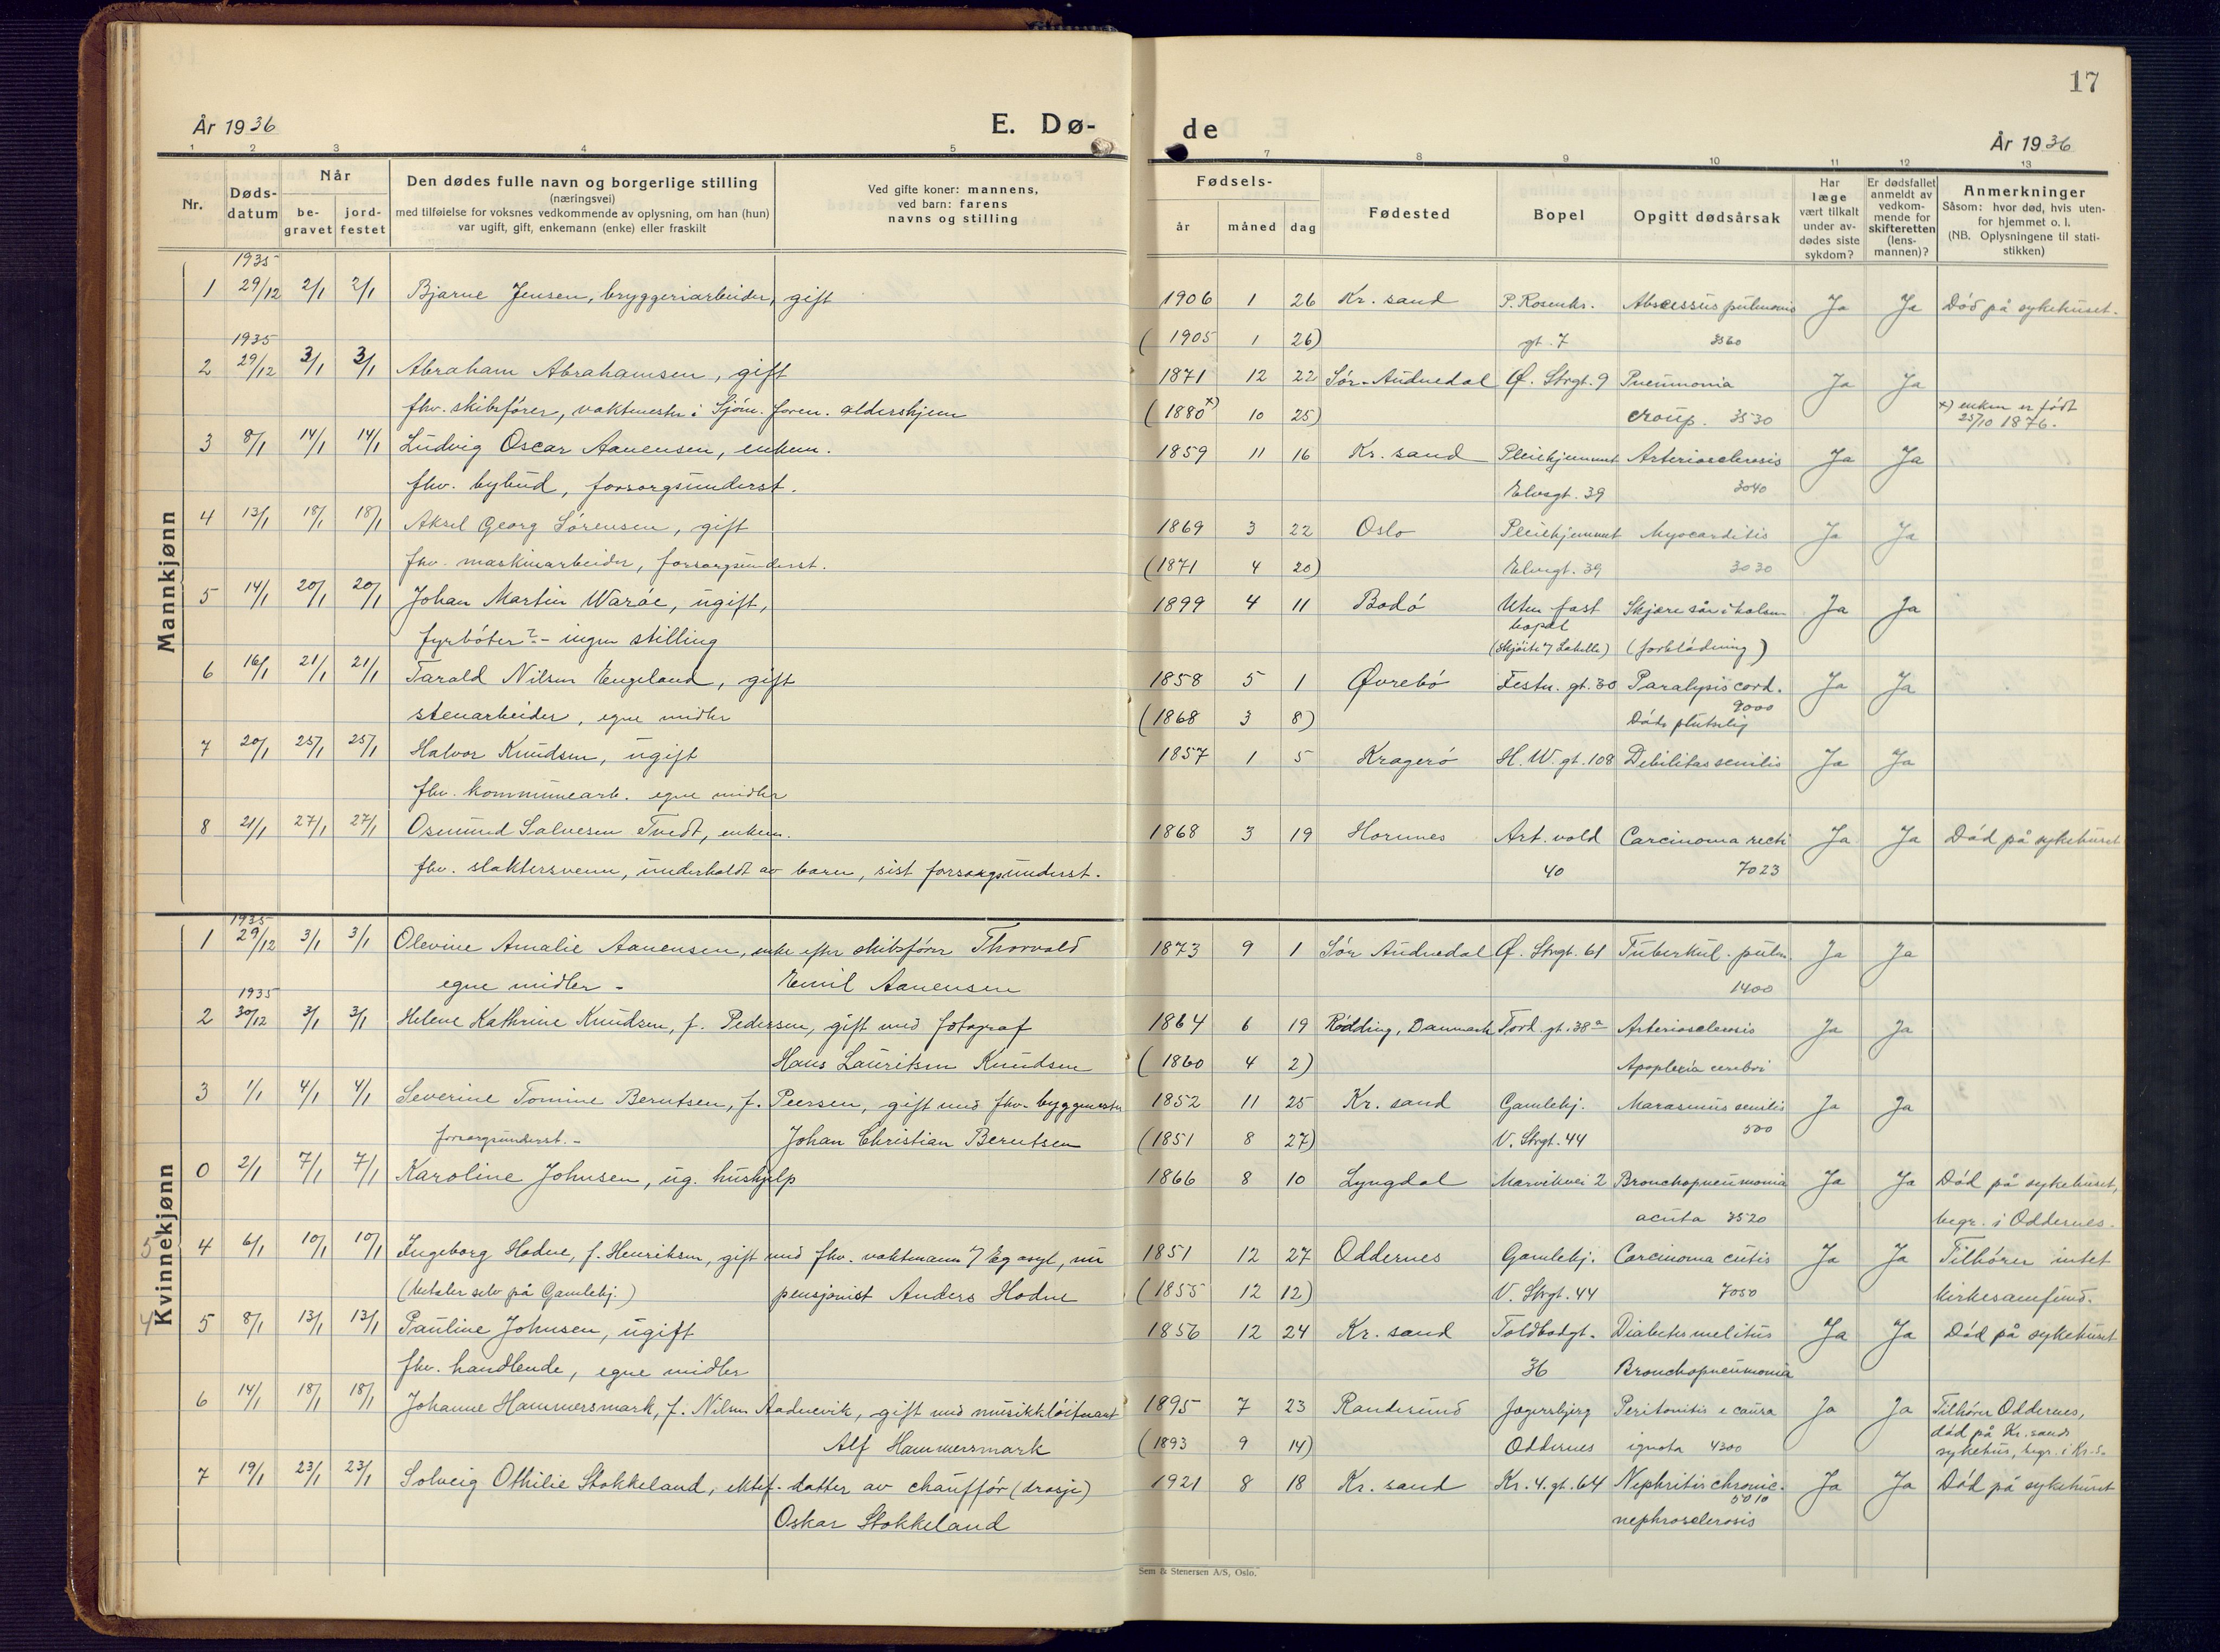 17
År 1936
E. Dø-
de
År 1936
1 2 3 4 5
7 8 9 10 11 12 13
Nr.
Døds-
datum
Når
be-
gravet
jord-
festet
Den dødes fulle navn og borgerlige stilling
(næringsvei)
med tilføielse for voksnes vedkommende av oplysning, om han (hun)
var ugift, gift, enkemann (enke) eller fraskilt
Ved gifte koner: mannens,
ved barn: farens
navns og stilling
Fødsels-
år måned dag
Fødested
Bopel
Opgitt dødsårsak
Har
læge
vært tilkalt
under av-
dødes siste
sykdom?
Er dødsfallet
anmeldt av
vedkom-
mende for
skifteretten
(lens-
mannen)?
Anmerkninger
Såsom: hvor død, hvis uten-
for hjemmet o. l.
(NB. Oplysningene til stati-
stikken)
Mannkjønn
1935
1 29/12 2/1 2/1 Bjarne Jensen, bryggeriarbeider, gift 1906 1 26 Kr. sand P. Rosenkr. Abscessus pulmonis Ja Ja Død på sykehuset.
(1905 1 26) gt. 7 3560
1935
2 29/12 3/1 3/1 Abraham Abrahamsen, gift 1871 12 22 Sør-Audnedal Ø. Strgt. 9 Pneumonia Ja Ja
fhv. skibsfører, vaktmester i Sjøm. foren. aldershjem (1880x) 10 25) croup. 3530 x) enken er født
25/10 1876.
3 8/1 14/1 14/1 Ludvig Oscar Aanensen, enkem. 1859 11 16 Kr. sand Pleiehjemmet Arteriosclerosis Ja Ja
fhv. bybud, forsorgsunderst. Elvegt. 39 3040
4 13/1 18/1 18/1 Aksel Georg Sørensen, gift 1869 3 22 Oslo Pleiehjemmet Myocarditis Ja Ja
fhv. maskinarbeider, forsorgsunderst. (1871 4 20) Elvegt. 39 3030
5 14/1 20/1 20/1 Johan Martin Warøe, ugift, 1899 4 11 Bodø Uten fast Skjære sår i halsen Ja Ja
bopel
fyrbøter? - ingen stilling (forblødning)
6 16/1 21/1 21/1 Tarald Nilsen Engeland, gift 1858 5 1 Øvrebø Festn. gt. 30 Paralysis cord. Ja Ja
9000
stenarbeider, egne midler (1868 3 8) Døde plutselig
7 20/1 25/1 25/1 Halvor Knudsen, ugift 1857 1 5 Kragerø H. W. gt. 108 Debilitas senilis Ja Ja
fhv. kommunearb. egne midler
8 21/1 27/1 27/1 Osmund Salvesen Tvedt, enkem. 1868 3 19 Hornnes Art. vold Carcinoma recti Ja Ja Død på sykehuset
fhv. slaktersvenn, underholdt av barn, sist forsorgsunderst. 40 7023
Kvinnekjønn
1935
1 29/12 3/1 3/1 Olevine Amalie Aanensen, enke efter skibsfører Thorvald 1873 9 1 Sør Audnedal Ø. Strgt. 61 Tuberkul. pulm. Ja Ja
egne midler - Emil Aanensen 1400
1935
2 30/12 3/1 3/1 Helene Kathrine Knudsen, f. Pedersen, gift med fotograf 1864 6 19 Rødding, Danmark Tord. gt. 38a Arteriosclerosis Ja Ja
Hans Lauritsen Knudsen (1860 4 2) Apoplexia cerebri
3 1/1 4/1 4/1 Severine Tomine Berntsen, f. Peersen, gift med fhv. byggmester 1852 11 25 Kr. sand Gamlehj. Marasmus senilis Ja Ja
500
forsorgsunderst. - Johan Christian Berntsen (1851 8 27) V. Strgt. 44
0 2/1 7/1 7/1 Karoline Johnsen, ug. hushjelp 1866 8 10 Lyngdal Marvikvei 2 Bronchopneumonia Ja Ja Død på sykehuset,
acuta 3520 begr. i Oddernes.
5 4 6/1 10/1 10/1 Ingeborg Hodne, f. Henriksen, gift med fhv. vaktmann v/ Eg asyl, nu 1851 12 27 Oddernes Gamlehj. Carcinoma cutis Ja Ja Tilhører intet
(betaler selv på Gamlehj.) pensjonist Anders Hodne (1855 12 12) V. Strgt. 44 7050 kirkesamfund.
4 5 8/1 13/1 13/1 Pauline Johnsen, ugift 1856 12 24 Kr. sand Toldbodgt. Diabetes melitus Ja Ja Død på sykehuset
fhv. handlende, egne midler 36 Bronchopneumonia
6 14/1 18/1 18/1 Johanne Hammersmark, f. Nilsen Aadnevik, gift med musikkløitnant 1895 7 23 Randesund Jegersbjerg Peritonitis e causa Ja Ja Tilhører Oddernes,
død på Kr. sands
Alf Hammersmark (1893 9 14) Oddernes ignota 4300 sykehus, begr. i Kr. s.
7 19/1 23/1 23/1 Solveig Othilie Stokkeland, ektef. datter av chauffør (drosje) 1921 8 18 Kr. sand Kr. 4. gt. 64 Nephritis chronic. Ja Ja Død på sykehuset
5010
Oskar Stokkeland nephrosclerosis
Sem & Stenersen A/S, Oslo.